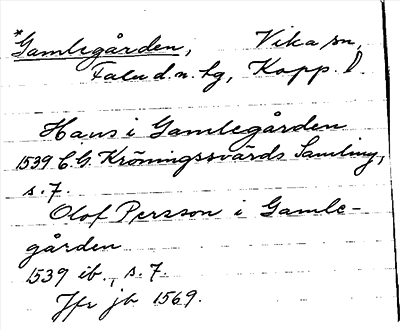 *Gamlegården, Vika sn,
Falu d.n. tg, Kopp. l.
Hans i Gamlegården
1539 C.G. Kröningssvärds Samling,
s. 7.
Olof Persson i Gamle-
gården
1539 ib., s. 7.
Jfr jb 1569.